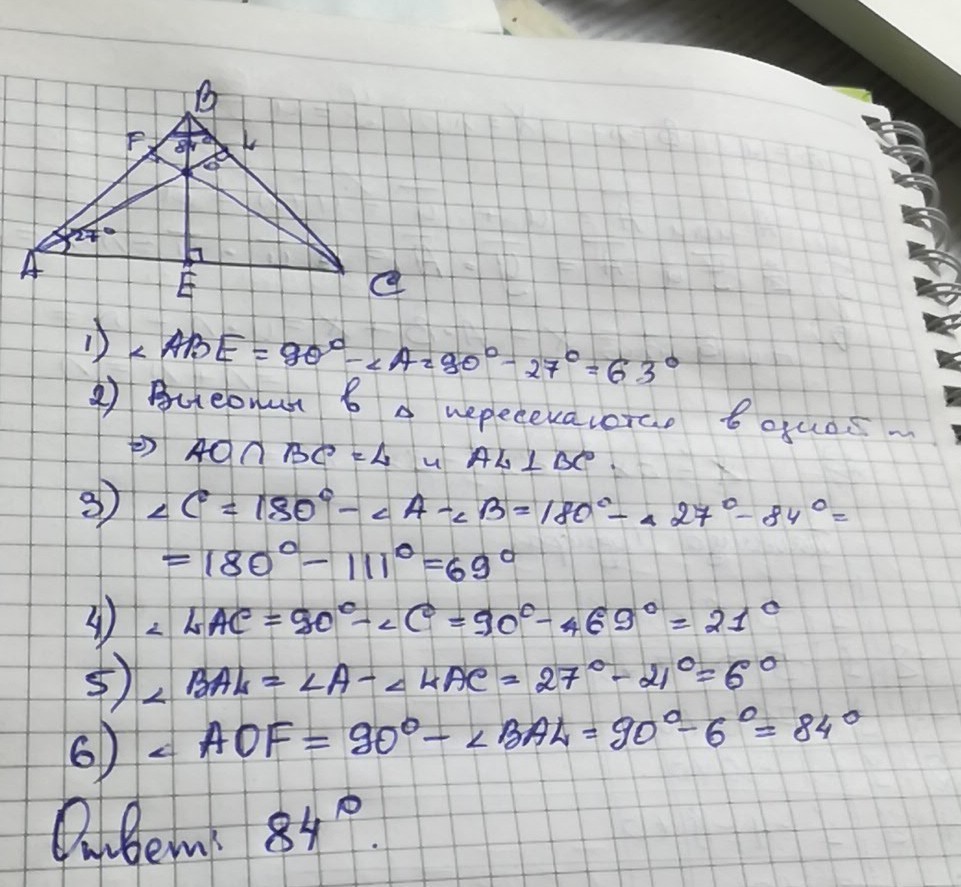 B
F 84° L
O
A 27°
E C
1) ∠ABE = 90° - ∠A = 90° - 27° = 63°
2) Высоты в Δ пересекаются в одной т
⇒ AO∩BC = L и AL⊥BC.
3) ∠C = 180° - ∠A - ∠B = 180° - ∠27° - 84° =
= 180° - 111° = 69°
4) ∠LAC = 90° - ∠C = 90° - ∠69° = 21°
5) ∠BAL = ∠A - ∠LAC = 27° - 21° = 6°
6) ∠AOF = 90° - ∠BAL = 90° - 6° = 84°
Ответ: 84°.